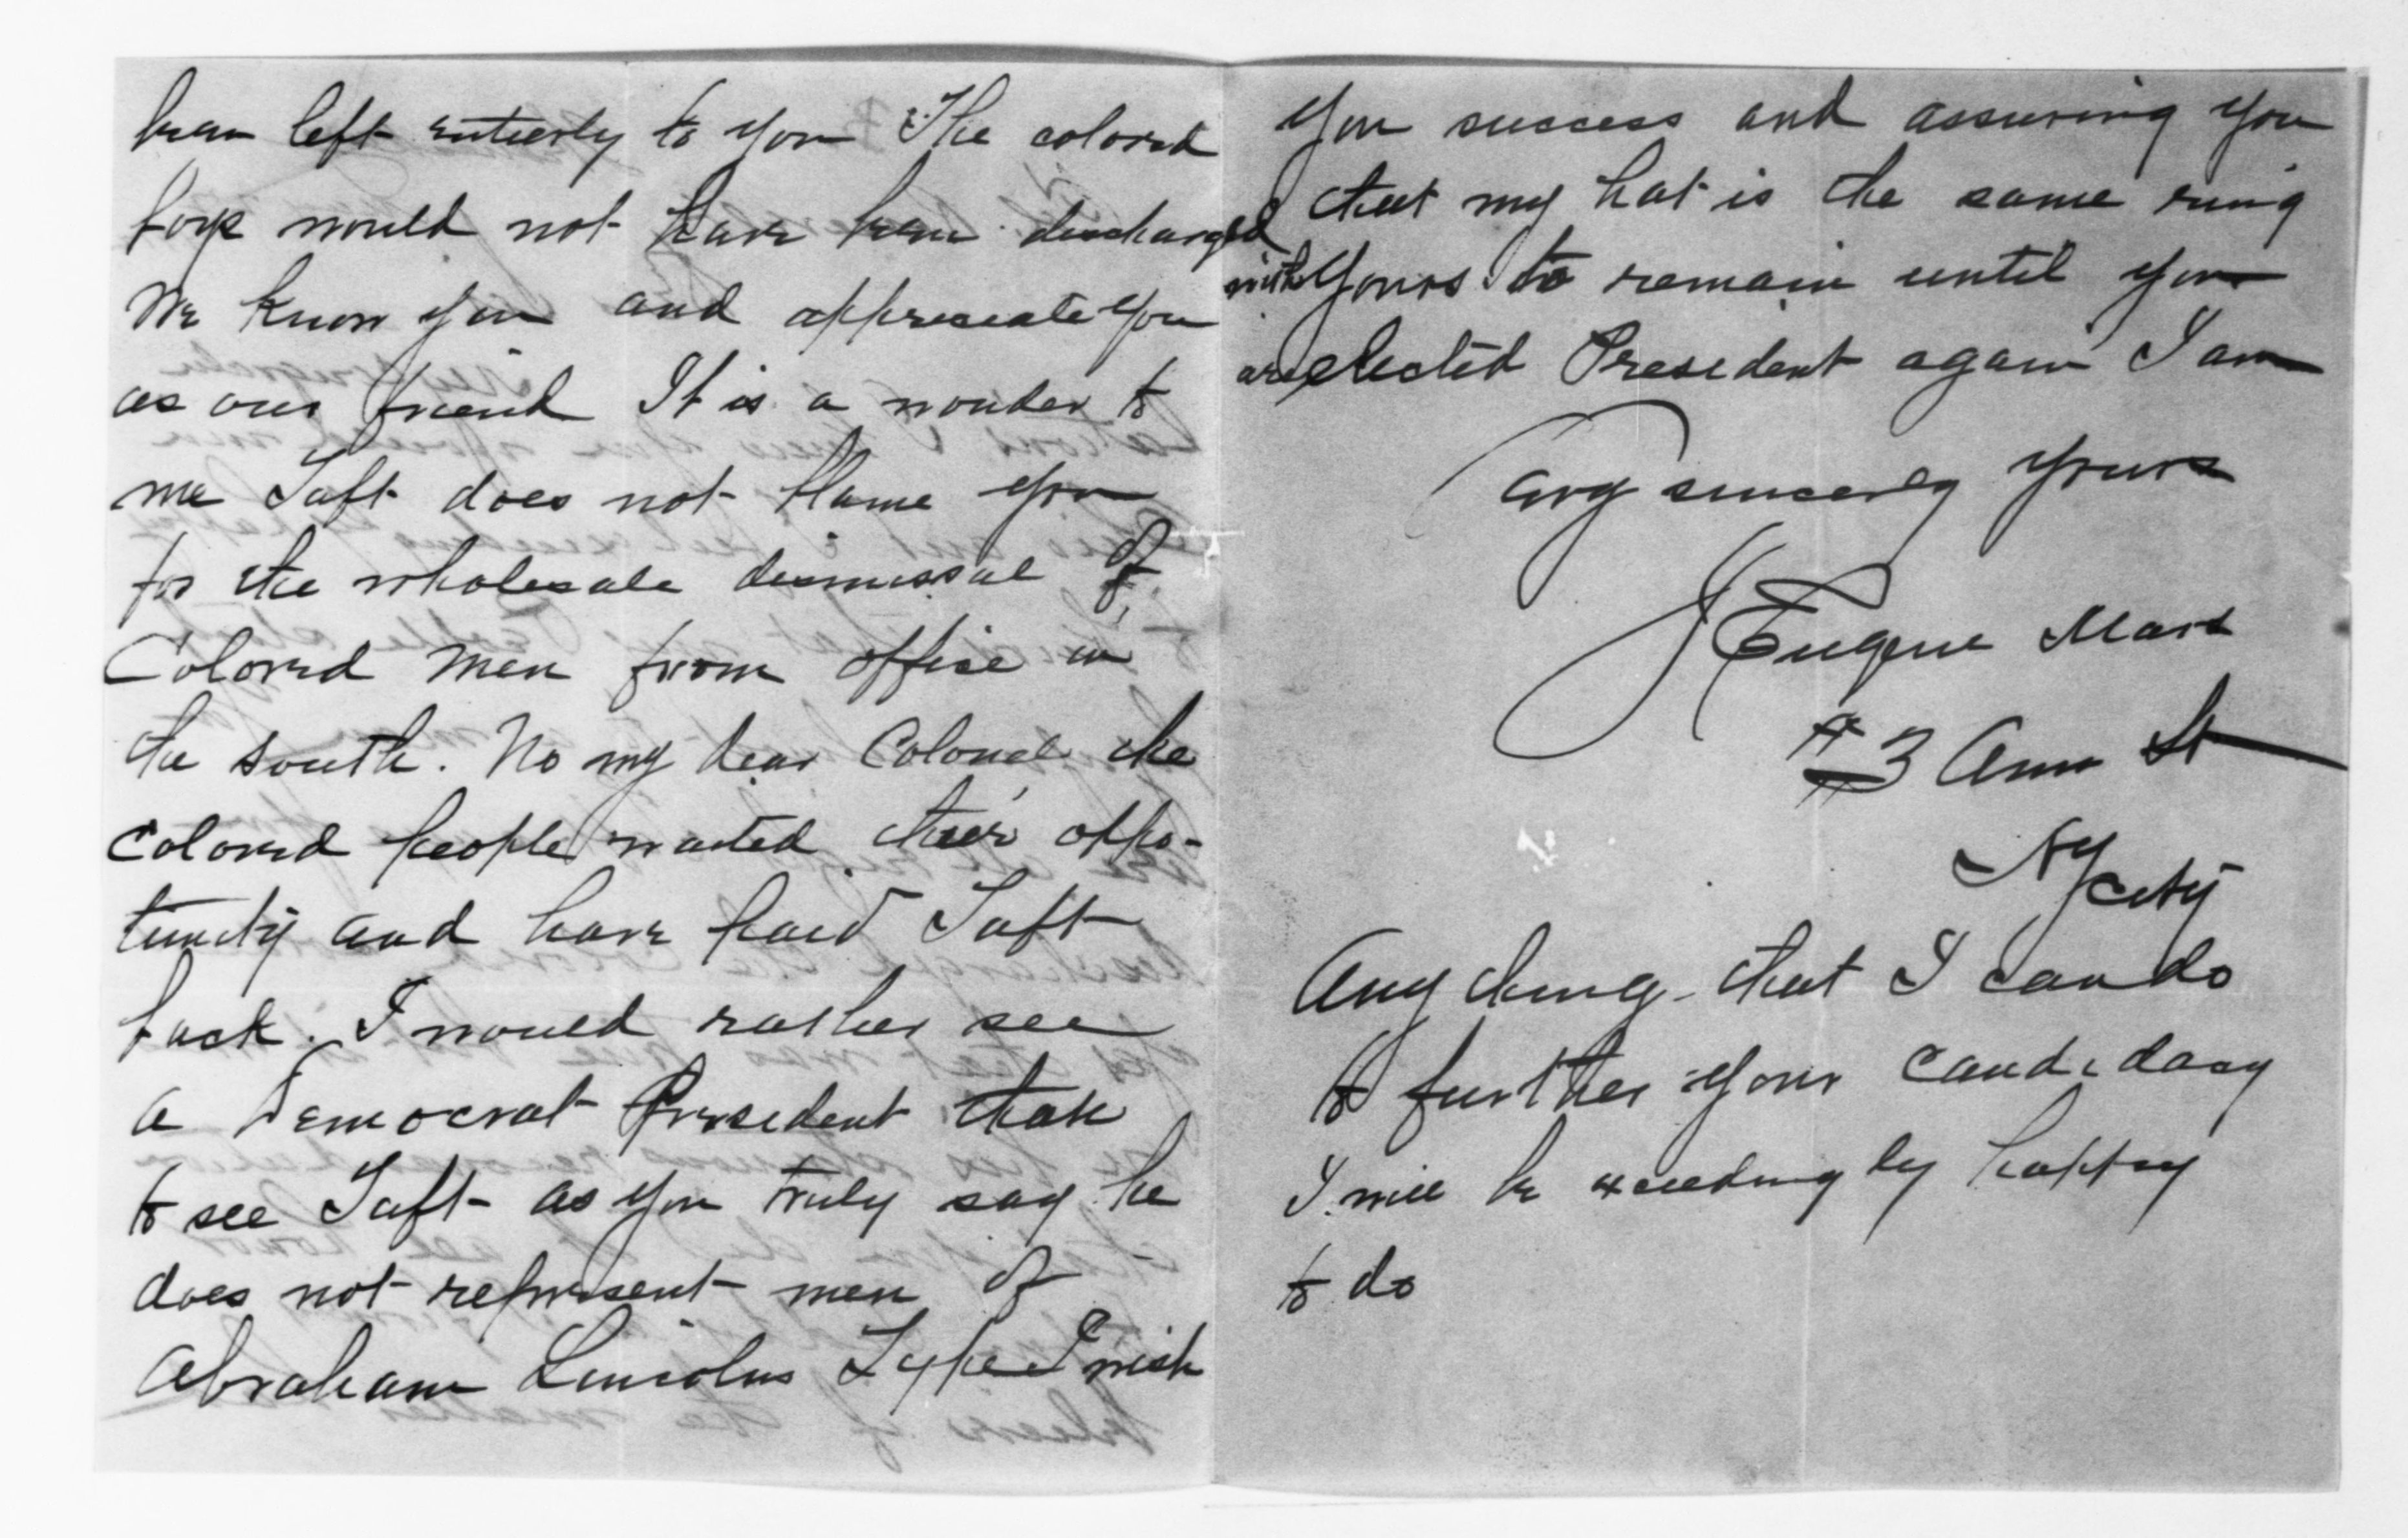 been left entierly to you The colored
boys would not have been discharged
We know you and appreceate you
as our friend It is a wonder to
me Taft does not blame you
for the wholesale dismissal of
Colored men from office in
the south. No my dear Colonel the
Colored people wanted their oppo-
tunity and have paid Taft
back. I would rather see
a Democrat President than
to see Taft as you truly say he
does not represent men of
Abraham Lincolns Type I wish
you success and assuring you
that my hat is the same ring
with yours to remain until you
are elected President again I am
very sincerely yours
J Eugene
#3 Ann St
NY City
Any thing that I can do
to further your candidacy
I will be exceedingly happy
to do